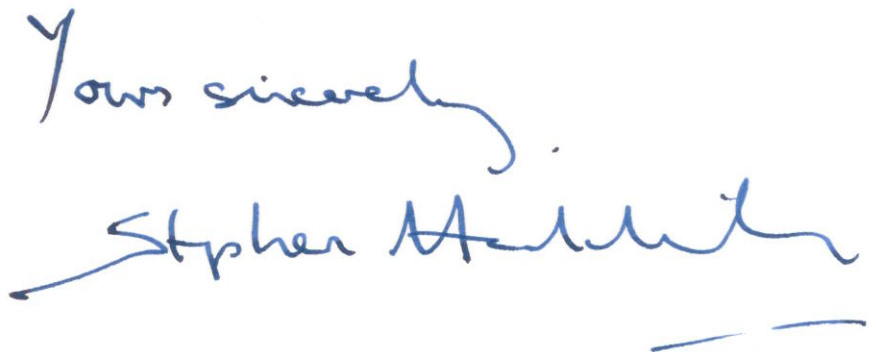 Yours sincerely
Stephen